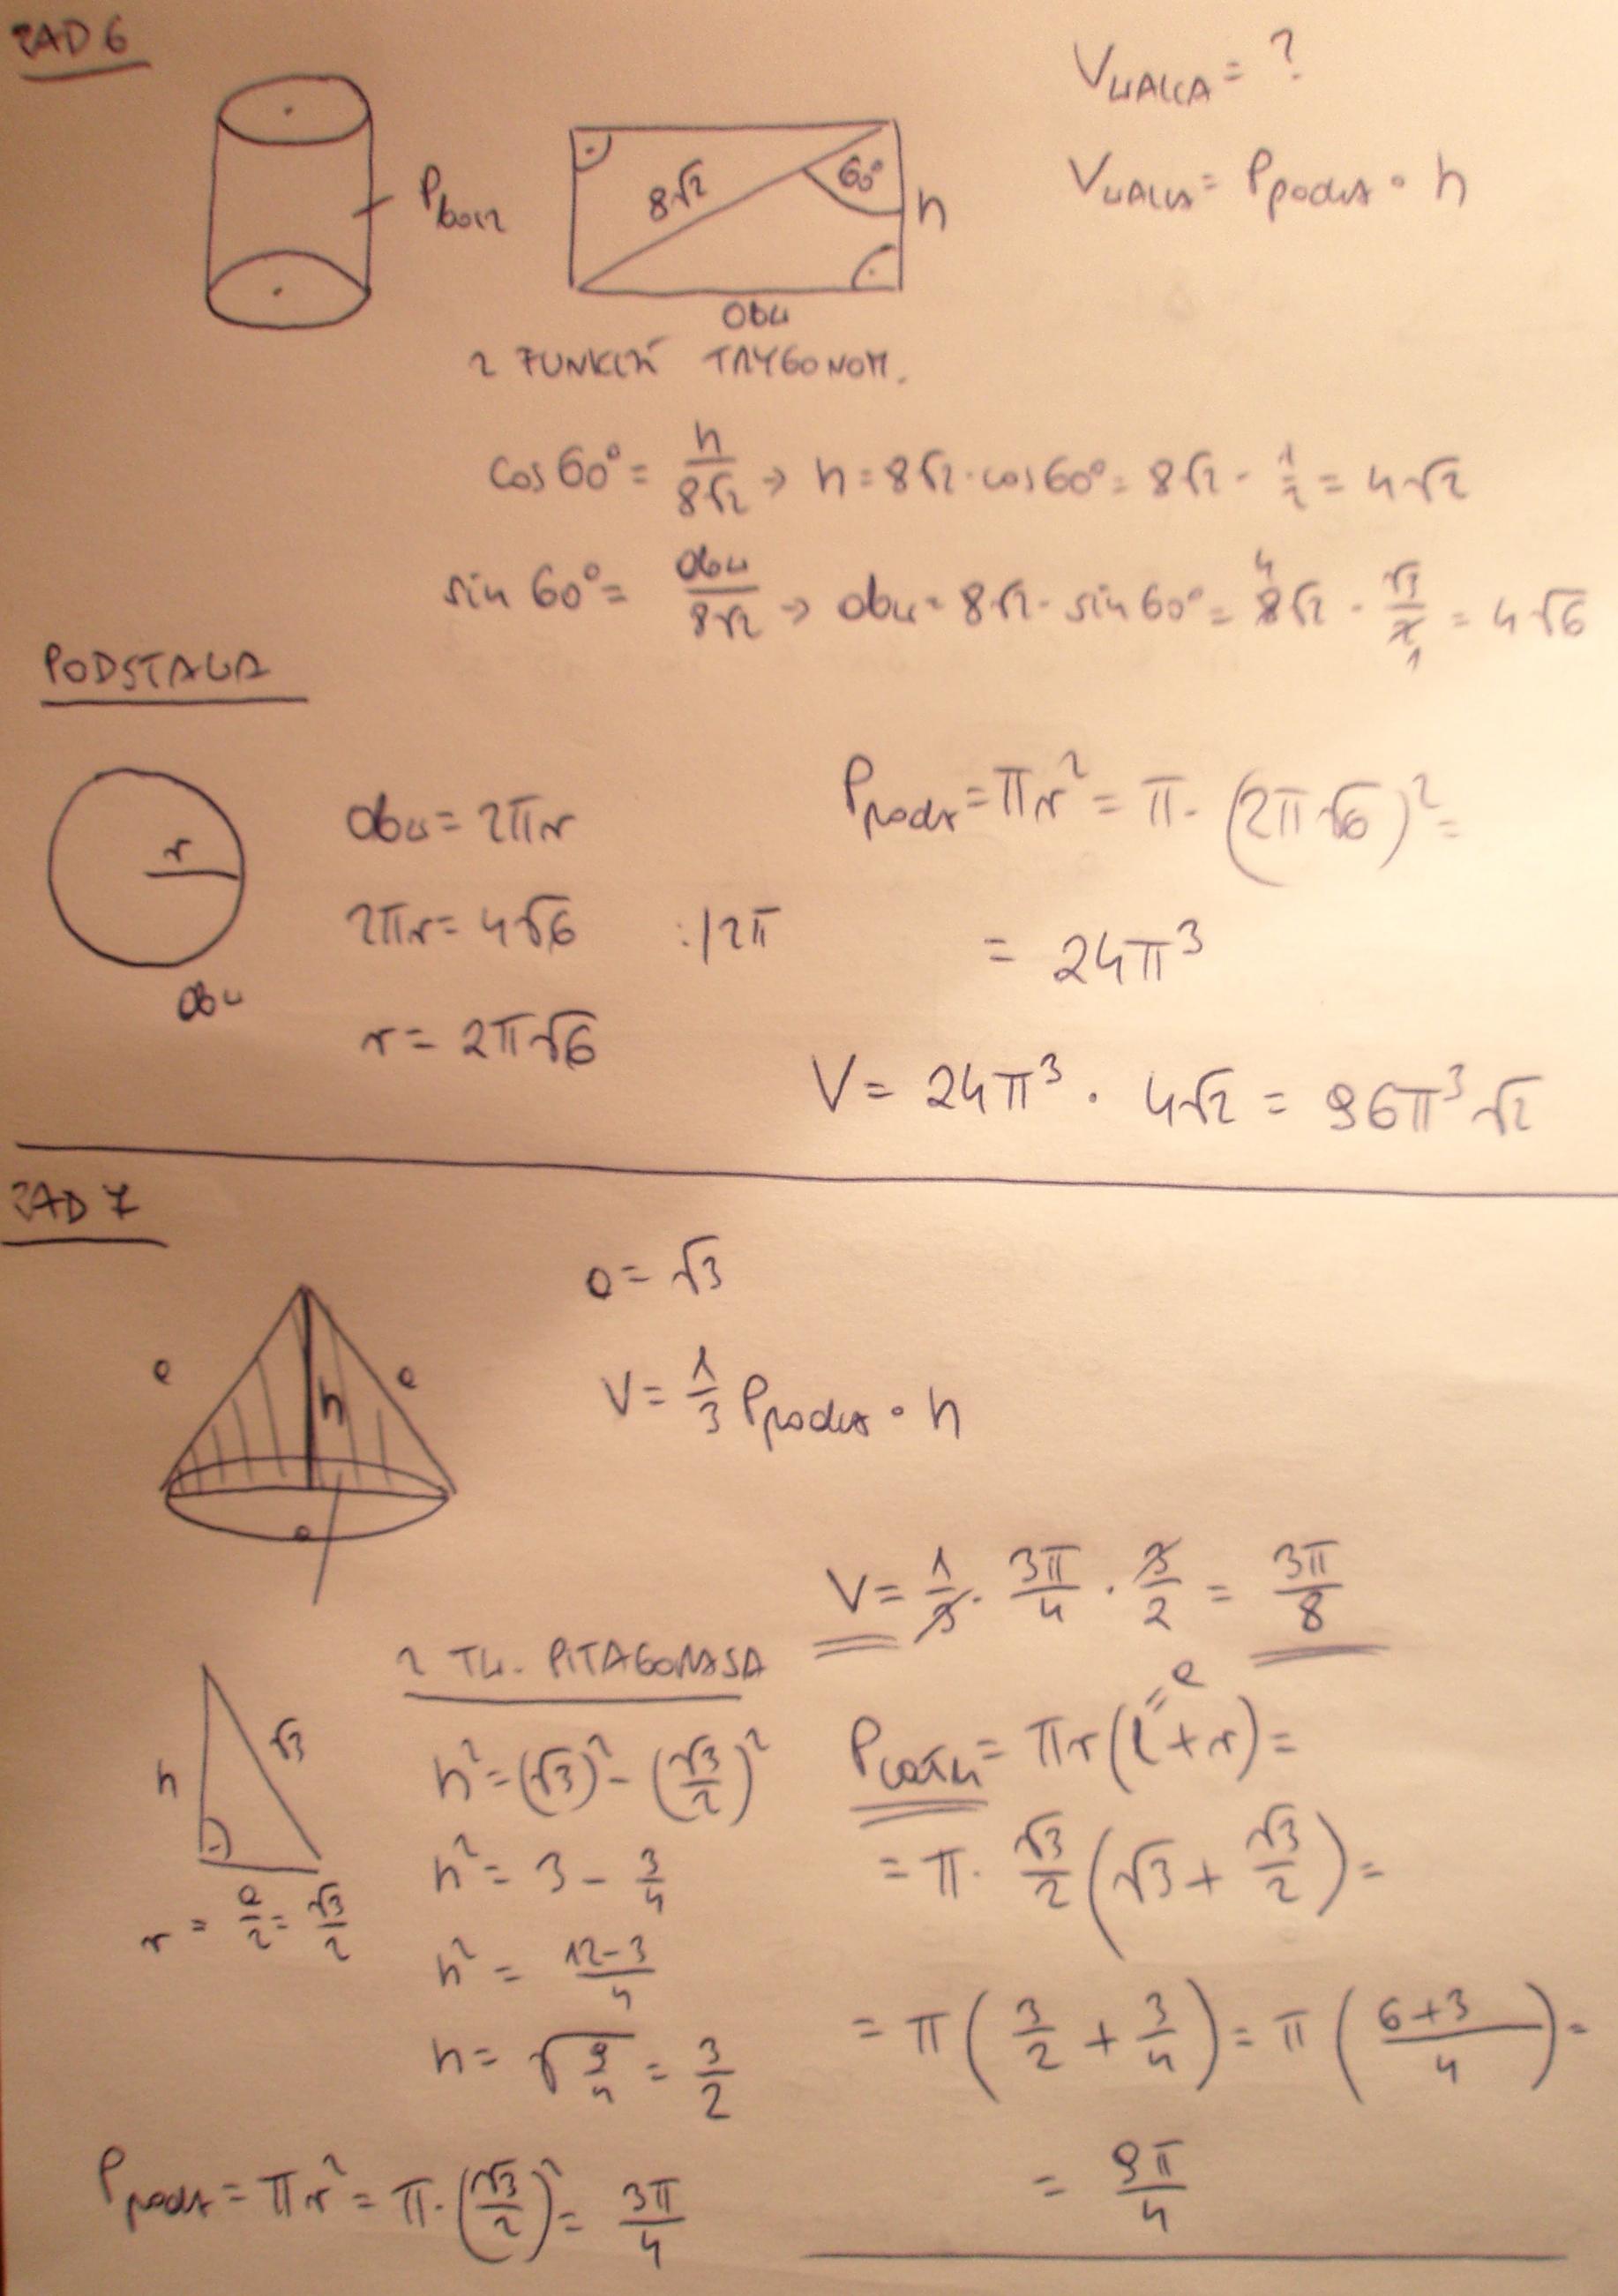 ZAD 6
V WALCA = ?
V WALCA = P podst · h
P bocz
8√2
60°
h
Obw
Z FUNKCJI TRYGONOM.
cos 60° = h/8√2 → h = 8√2 · cos 60° = 8√2 · 1/2 = 4√2
sin 60° = obw/8√2 → obw = 8√2 · sin 60° = 8√2 · √3/2 = 4√6
4
1
PODSTAWA
r
obw
obw = 2πr
2πr = 4√6 :|2π
r = 2π√6
P podst = πr² = π · (2π√6)² =
= 24π³
V = 24π³ · 4√2 = 96π³√2
ZAD 7
a = √3
V = 1/3 P podst · h
a
a
h
a
V = 1/3 · 3π/4 · 3/2 = 3π/8
Z TW. PITAGORASA
h
√3
r = a/2 = √3/2
h² = (√3)² - (√3/2)²
h² = 3 - 3/4
h² = 12-3/4
h = √9/4 = 3/2
P podst = πr² = π · (√3/2)² = 3π/4
= a
P całk = πr(l + r) =
= π · √3/2 (√3 + √3/2) =
= π (3/2 + 3/4) = π (6+3/4) =
= 9π/4